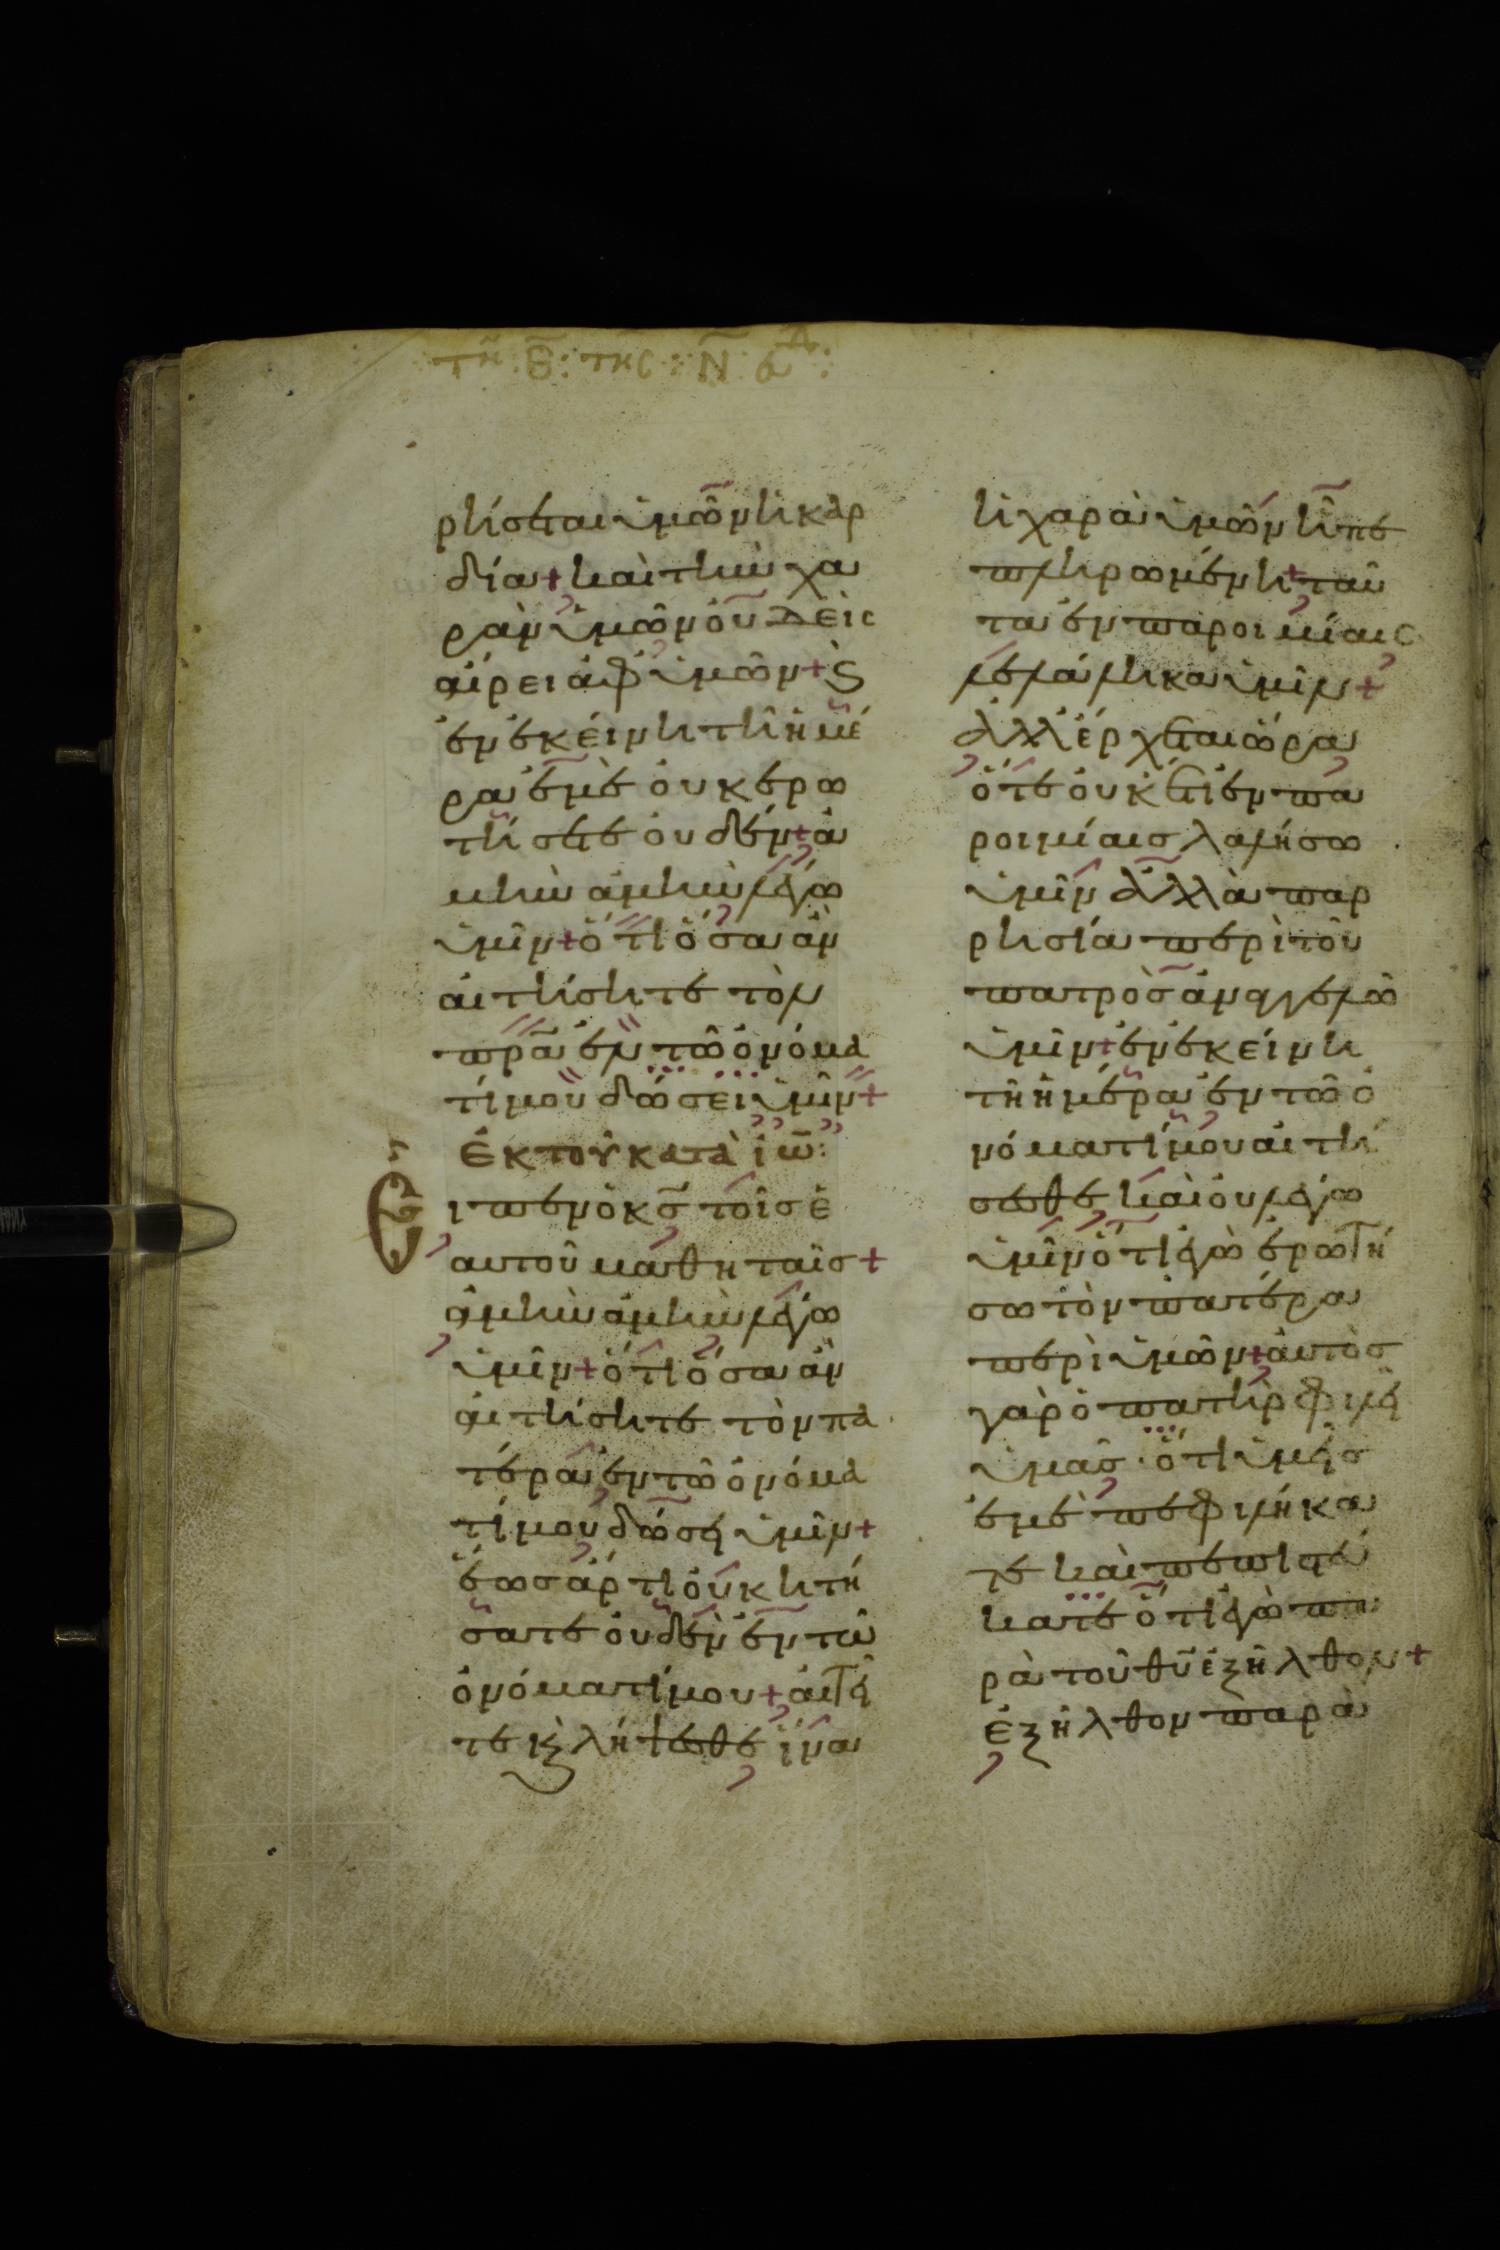 τῆ Β: τῆς: Ν ἑβδ:
ρήσεται ὑμῶν ἡ καρ
δία + καὶ τὴν χα
ρὰν ὑμῶν οὐδεὶς
αἴρει ἀφ' ὑμῶν + ϗ
ἐν ἐκείνη τῆ ἡμέ
ρα ἐμὲ οὐκ ἐρω
τήσετε οὐδέν + ἀ
μὴν ἀμὴν λέγω
ὑμῖν + ὅτι ὅσα ἂν
αἰτήσητε τὸν
πρα ἐν τῶ ὀνόμα
τί μου δώσει ὑμῖν +
Ἐκ τοῦ κατὰ ἰω:
Ειπεν ὁ κς τοῖς ἑ
αυτοῦ μαθηταῖς +
ἀμὴν ἀμὴν λέγω
ὑμῖν + ὅτι ὅσα ἂν
αἰτήσητε τὸν πα
τέρα ἐν τῶ ὀνόμα
τί μου δώσει ὑμῖν +
ἕως ἄρτι οὐκ ἠτή
σατε οὐδὲν ἐν τῶ
ὀνόματί μου + αἰτεῖ
τε ϗ λήψεσθε ἵνα
ἡ χαρὰ ὑμῶν ἦ πε
πληρωμένη + ταῦ
τα ἐν παροιμίαις
λελάληκα ὑμῖν +
ἀλλ' ἔρχεται ὥρα
ὅτε οὐκ έτι ἐν πα
ροιμίαις λαλήσω
ὑμῖν ἀλλὰ παρ
ρησία περὶ τοῦ
πατρὸς ἀναγγελῶ
ὑμῖν + ἐν ἐκείνη
τῆ ἡμέρα ἐν τῶ ὀ
νόματί μου αἰτή
σεσθε καὶ οὐ λέγω
ὑμῖν ὅτι ἐγὼ ἐρωτή
σω τὸν πατέρα
περὶ ὑμῶν + αὐτὸς
γὰρ ὁ πατὴρ φιλεῖ
ὑμᾶς · ὅτι ὑμεῖς
ἐμὲ πεφιλήκα
τε καὶ πεπιστεύ
κατε ὅτι ἐγὼ πα
ρὰ τοῦ θυ ἐξῆλθον +
ἐξῆλθον παρὰ